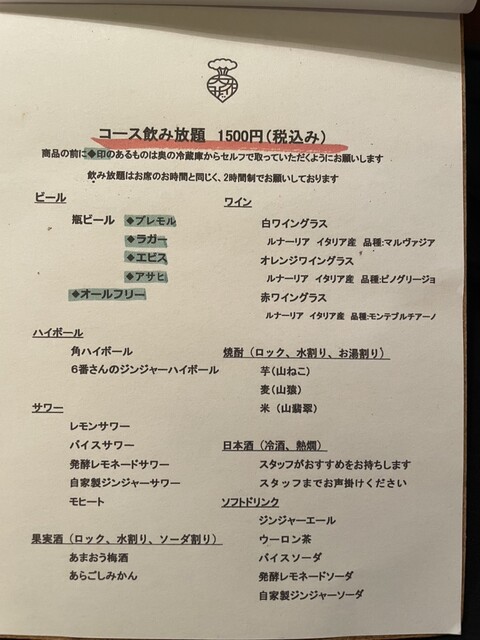 コース飲み放題 1500円(税込み)
商品の前に◆印のあるものは奥の冷蔵庫からセルフで取っていただくようにお願いします
飲み放題はお席のお時間と同じく、2時間制でお願いしております
ビール
瓶ビール ◆プレモル
◆ラガー
◆エビス
◆アサヒ
◆オールフリー
ハイボール
角ハイボール
6番さんのジンジャーハイボール
サワー
レモンサワー
バイスサワー
発酵レモネードサワー
自家製ジンジャーサワー
モヒート
果実酒(ロック、水割り、ソーダ割り)
あまおう梅酒
あらごしみかん
ワイン
白ワイングラス
ルナーリア イタリア産 品種:マルヴァジア
オレンジワイングラス
ルナーリア イタリア産 品種:ピノグリージョ
赤ワイングラス
ルナーリア イタリア産 品種:モンテプルチアーノ
焼酎(ロック、水割り、お湯割り)
芋(山ねこ)
麦(山猿)
米(山翡翠)
日本酒(冷酒、熱燗)
スタッフがおすすめをお持ちします
スタッフまでお声掛けください
ソフトドリンク
ジンジャーエール
ウーロン茶
バイスソーダ
発酵レモネードソーダ
自家製ジンジャーソーダ